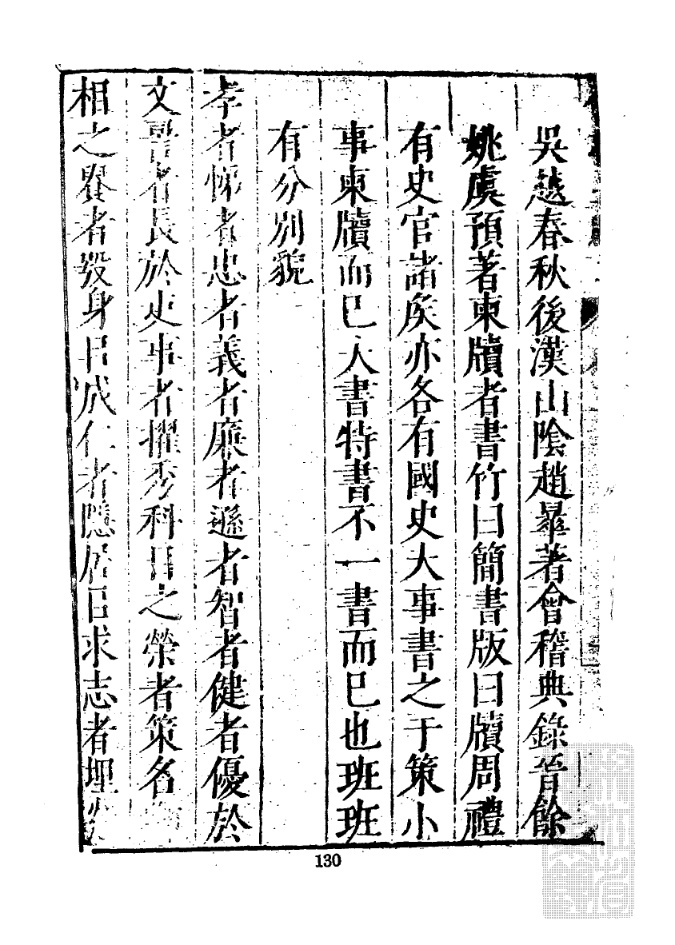 吳越春秋後漢山隂趙曅著會稽典錄晉餘
姚虞預著柬牘者書竹曰簡書版曰牘周禮
有史官諸矦亦各有國史大事書之于策小
事柬牘而已大書特書不一書而已也班班
有分別貌
孝者悌者忠者義者廉者遜者智者健者優於
文學者長於吏事者擢秀科目之榮者策名
相之者殺身㠯成仁者隱居㠯求志者埋
130